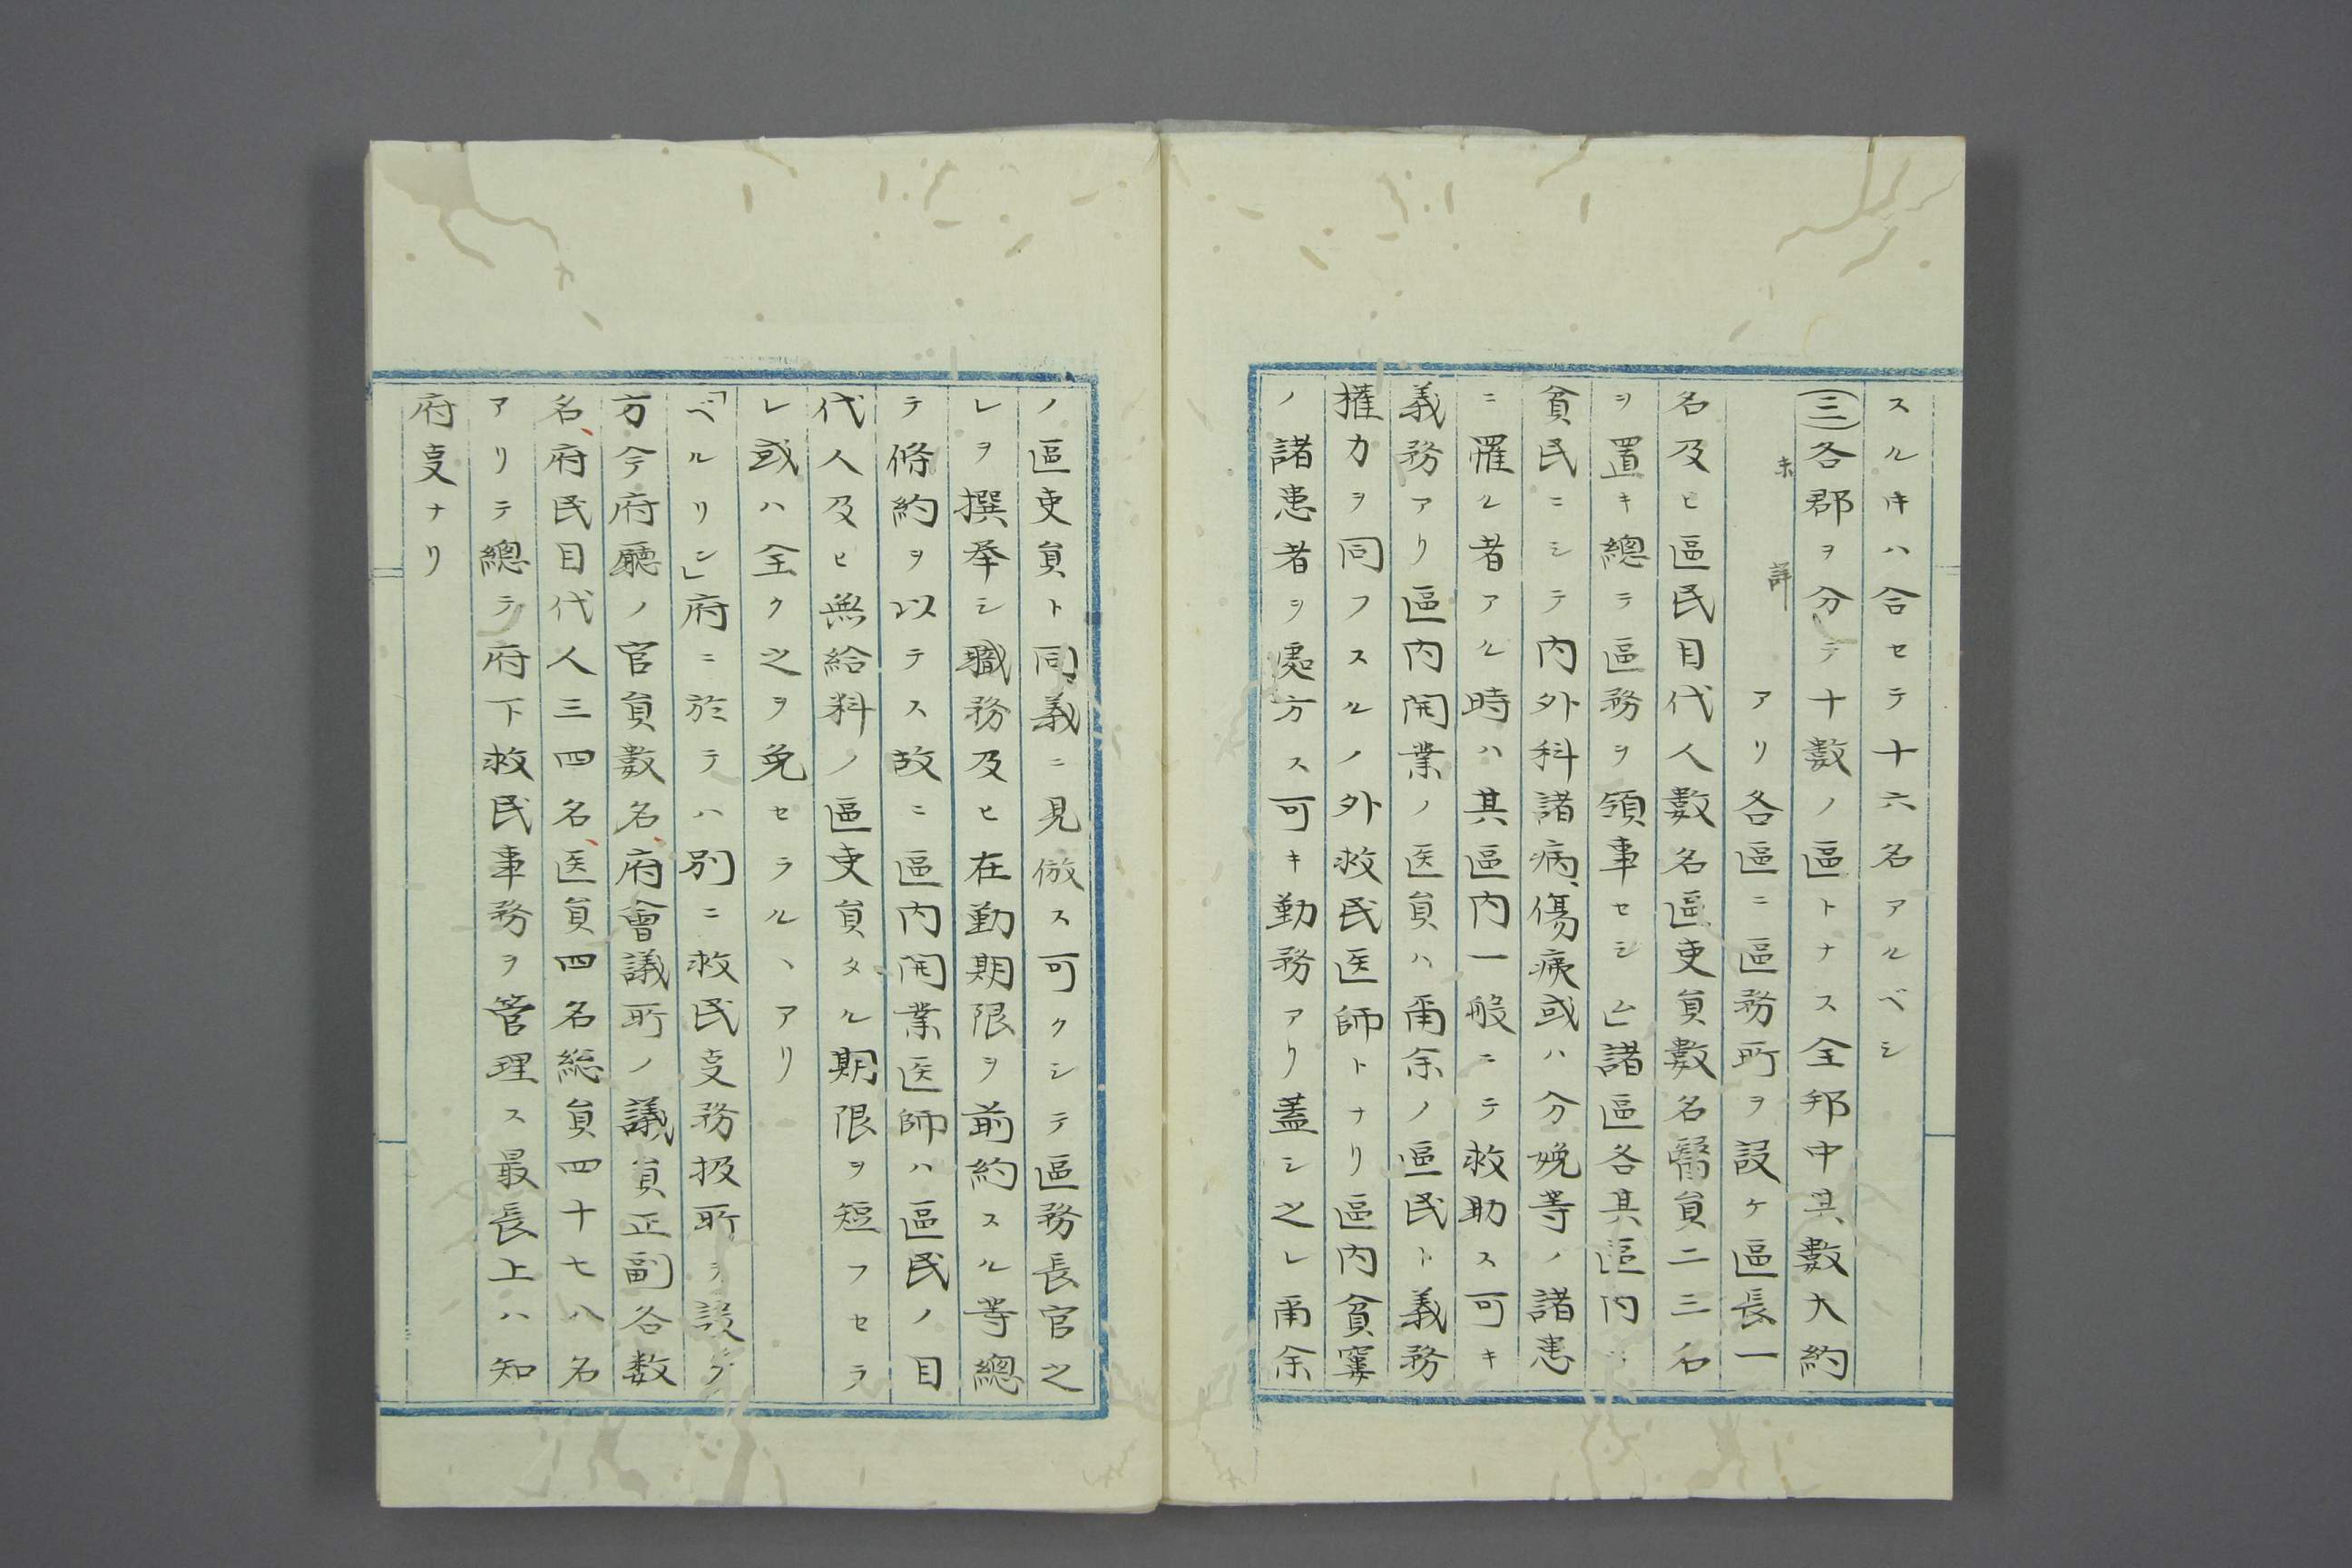 スルキハ合セテ十六名アルベシ
(三)各郡ヲ分テ十数ノ區トナス全邦中其數大約
未詳
アリ各區ニ區務所ヲ設ケ區長一
名及ヒ區民目代人數名區吏員數名醫員二三名
ヲ置キ總テ區務ヲ領事セシム諸區各其區内ニ
貧民ニシテ内外科諸病、傷痍或ハ分娩等ノ諸患
ニ罹ル者アル時ハ其區内一般ニテ救助ス可キ
義務アリ區内開業ノ医員ハ爾余ノ區民ト義務
權カヲ同フスルノ外救民医師トナリ區内貧窶
ノ諸患者ヲ處方ス可キ勤務アリ蓋シ之レ爾余
ノ區吏員ト同義ニ見倣ス可クシテ區務長官之
レヲ撰挙シ職務及ヒ在勤期限ヲ前約スル等總
テ條約ヲ以テス故ニ區内開業医師ハ區民ノ目
代人及ヒ無給料ノ區吏員タル期限ヲ短フセラ
レ或ハ全ク之ヲ免セラルヽアリ
「ベルリン」府ニ於テハ別ニ救民支務扱所ヲ設ク
方今府廳ノ官員數名、府會議所ノ議員正副各数
名、府民目代人三四名、医員四名総員四十七八名
アリテ總テ府下救民事務ヲ管理ス最長上ハ知
府叓ナリ